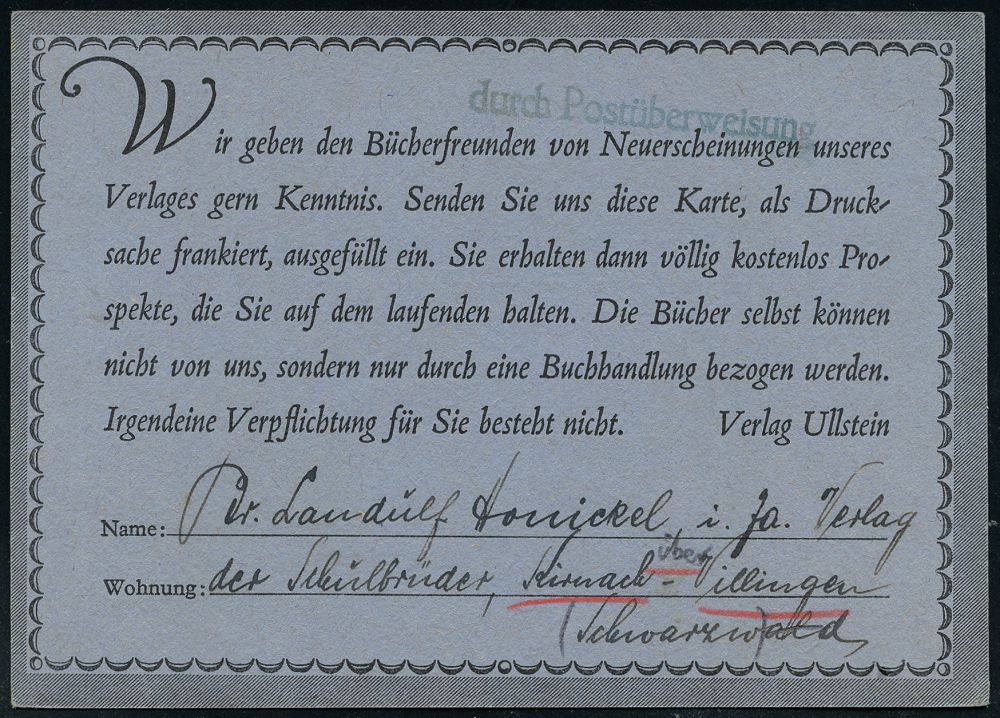 durch Postüberweisung
Wir geben den Bücherfreunden von Neuerscheinungen unseres
Verlages gern Kenntnis. Senden Sie uns diese Karte, als Druck-
sache frankiert, ausgefüllt ein. Sie erhalten dann völlig kostenlos Pro-
spekte, die Sie auf dem laufenden halten. Die Bücher selbst können
nicht von uns, sondern nur durch eine Buchhandlung bezogen werden.
Irgendeine Verpflichtung für Sie besteht nicht. Verlag Ullstein
Name: Br. Landulf Honickel, i. Fa. Verlag
über
Wohnung: der Schulbrüder, Kirnach-Villingen
(Schwarzw)ald